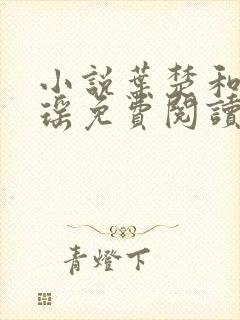 小說葉楚和
瑶免費閱讀
青燈下